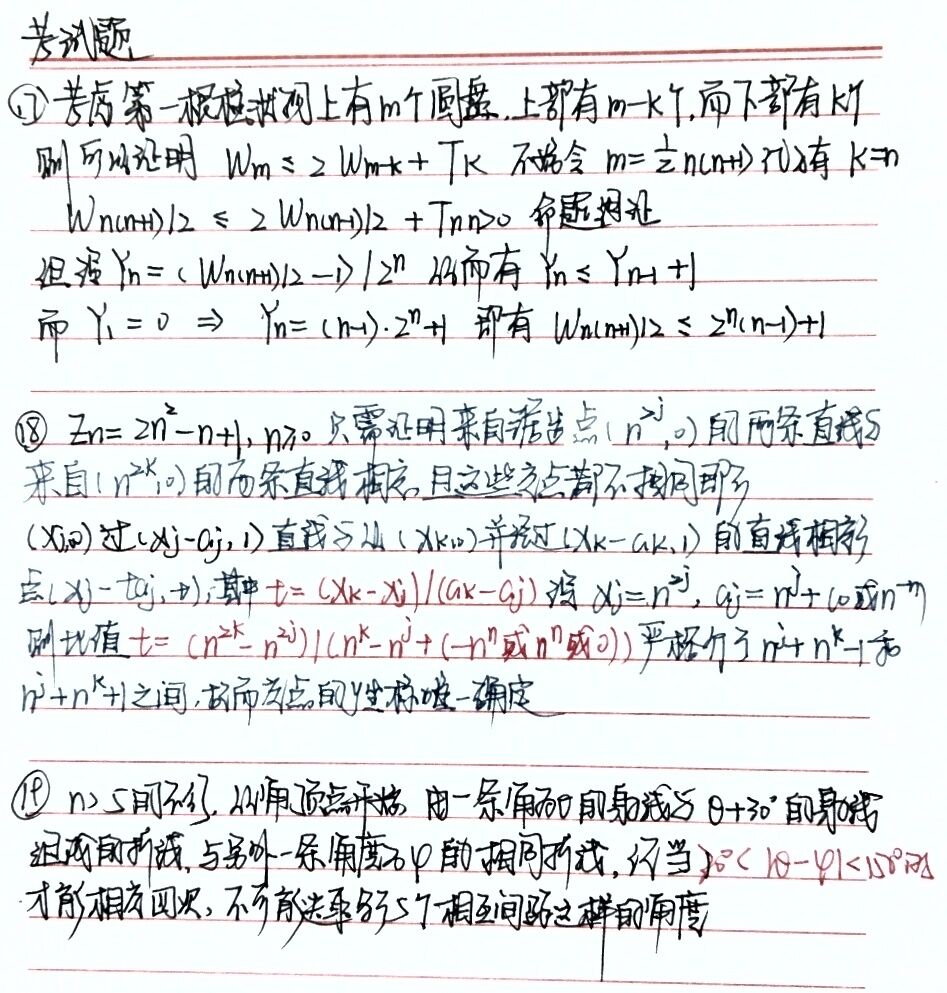 考试题
⑰ 考虑第一根柱 上有m个圆盘,上部有m-k个,而下部有k个
则可以证明 Wm ≤ 2 Wm-k + Tk 不妨令 m=½n(n+1) 有 k=n
Wn(n+1)/2 ≤ 2 Wn(n-1)/2 + Tn n≥0 命题
但设 Yn = (Wn(n+1)/2 -1)/2ⁿ 从而有 Yn ≤ Yn-1 +1
而 Y1 = 0 ⇒ Yn = (n-1)·2ⁿ+1 即有 Wn(n+1)/2 ≤ 2ⁿ(n-1)+1
⑱ Zn = 2n²-n+1, n≥0 只需证明来自 点(n²ʲ,0)的两条直线与
来自(n²ᵏ,0)的两条直线相交,且这些交点都不相同即可
(xj,0)过(xj-aj,1)直线与从(xk,0)并经过(xk-ak,1)的直线相交
点(xj-taj,t),其中 t=(xk-xj)/(ak-aj) 设 xj=n²ʲ, aj=nʲ+(0或n⁻ⁿ)
则比值 t=(n²ᵏ-n²ʲ)/(nᵏ-nʲ+(-n⁻ⁿ或0或n⁻ⁿ)) 严格介于 nʲ+nᵏ-1和
nʲ+nᵏ+1之间,故而交点的y坐标唯一确定
⑲ n>5时不行,从角顶点开始 由一条角为θ的射线与 θ+30°的射线
组成的折线,与另外一条角度为φ的相同折线,仅当30°<|θ-φ|<150°时
才能相交四次,不可能选取多于5个相互间隔这样的角度